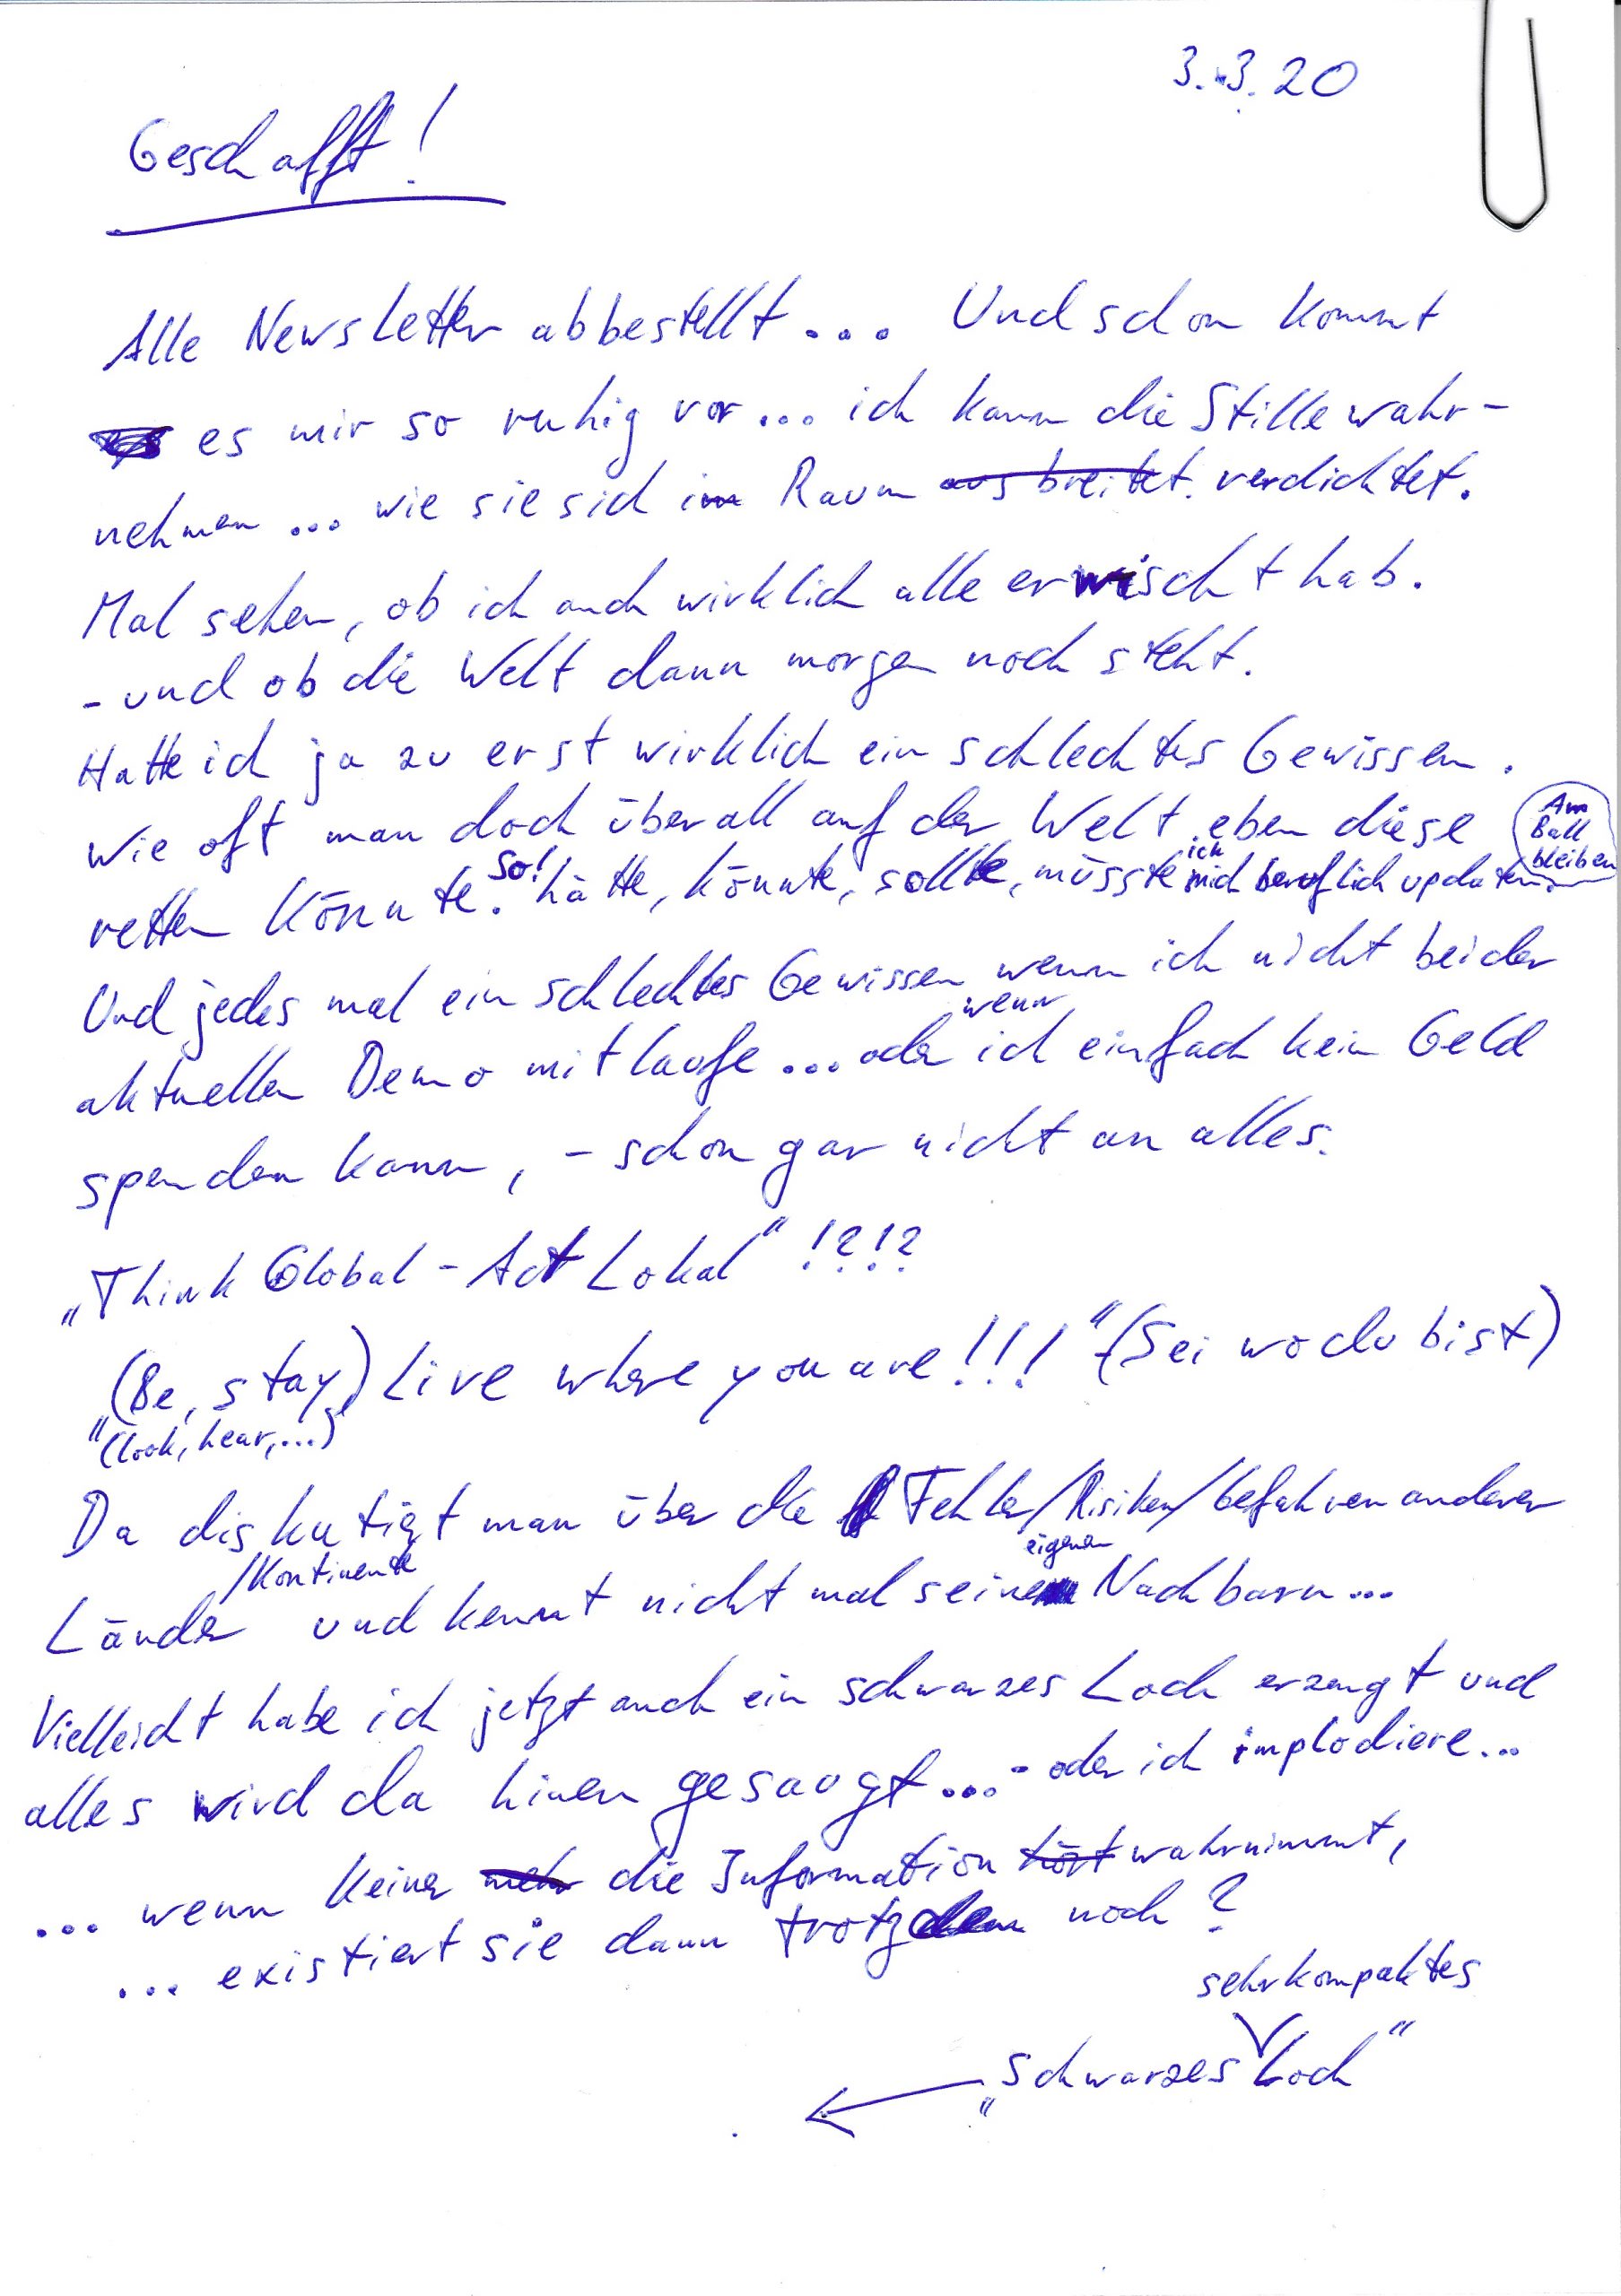 3.3.20
Geschafft!
Alle Newsletter abbestellt... Und schon kommt
es mir so ruhig vor... ich kann die Stille wahr-
nehmen... wie sie sich im Raum ausbreitet. verdichtet.
Mal sehen, ob ich auch wirklich alle erwischt hab.
- und ob die Welt dann morgen noch steht.
Hatte ich ja zu erst wirklich ein schlechtes Gewissen.
Wie oft man doch überall auf der Welt eben diese
retten könnte. so! hätte, könnte, sollte, müsste ich mich beruflich updaten.
Am
Ball
bleiben
Und jedes mal ein schlechtes Gewissen wenn ich nicht bei der
aktuellen Demo mitlaufe... oder wenn ich einfach kein Geld
spenden kann, - schon gar nicht an alles.
„Think Global - Act Lokal" !?!?
„(Be, stay,) Live where you are!!!" (Sei wo du bist)
(look, hear,...)
Da diskutiert man über die Fehler/Risiken/Gefahren anderer
Länder /Kontinente und kennt nicht mal seine eigenen Nachbarn...
Vielleicht habe ich jetzt auch ein schwarzes Loch erzeugt und
alles wird da hinen gesaugt... - oder ich implodiere...
... wenn keiner mehr die Information hört wahrnimmt,
... existiert sie dann trotzdem noch?
sehr kompaktes
. ← „schwarzes Loch"